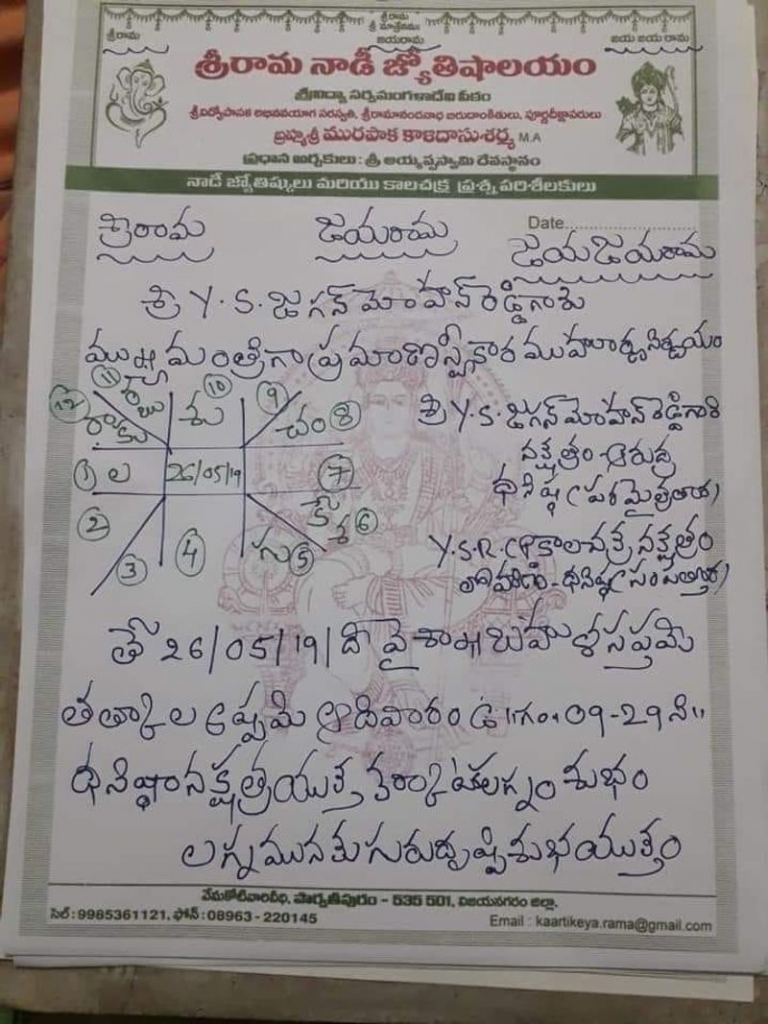 శ్రీరామ
శ్రీరామ
శ్రీ మాత్రేనమః
జయరామ
జయ జయ రామ
శ్రీరామ నాడీ జ్యోతిషాలయం
శ్రీవిద్యా సర్వమంగళాదేవి పీఠం
శ్రీవిద్యోపాసక అభినవయాగ సరస్వతి, శ్రీరామానందనాథ బిరుదాంకితులు, పూర్ణదీక్షాపరులు
బ్రహ్మశ్రీ మురపాక కాళిదాసుశర్మ M.A
ప్రధాన అర్చకులు : శ్రీ అయ్యప్పస్వామి దేవస్థానం
నాడీ జ్యోతిష్కులు మరియు కాలచక్ర ప్రశ్న పరిశీలకులు
Date
శ్రీరామ జయరామ జయజయరామ
శ్రీ Y.S. జగన్ మోహన్ రెడ్డిగారు
ముఖ్యమంత్రిగా ప్రమాణస్వీకార ముహూర్తనిర్ణయం
12 రా కు 11 ర బు 10 శు 9 చం 8
1 ల 26/05/19 7
2 3 4 గు 5 కే శ 6
శ్రీ Y.S. జగన్ మోహన్ రెడ్డిగారి
నక్షత్రం-ఆరుద్ర
ధనిష్ఠ (పరమైత్రతార)
Y.S.R.CP కాలచక్ర నక్షత్రం
రోహిణి-ధనిష్ఠ (సంపత్తార)
తే 26/05/19/ది వైశాఖ బహుళసప్తమి
తత్కాల అష్టమి ఆదివారం ఉ॥గం.09-29 ని॥
ధనిష్ఠానక్షత్రయుక్త కర్కాటకలగ్నం శుభం
లగ్నమునకు గురుదృష్టి శుభయుక్తం
వేమకోటివారివీధి, పార్వతీపురం - 535 501, విజయనగరం జిల్లా.
సెల్ : 9985361121, ఫోన్ : 08963 - 220145
Email : kaartikeya.rama@gmail.com